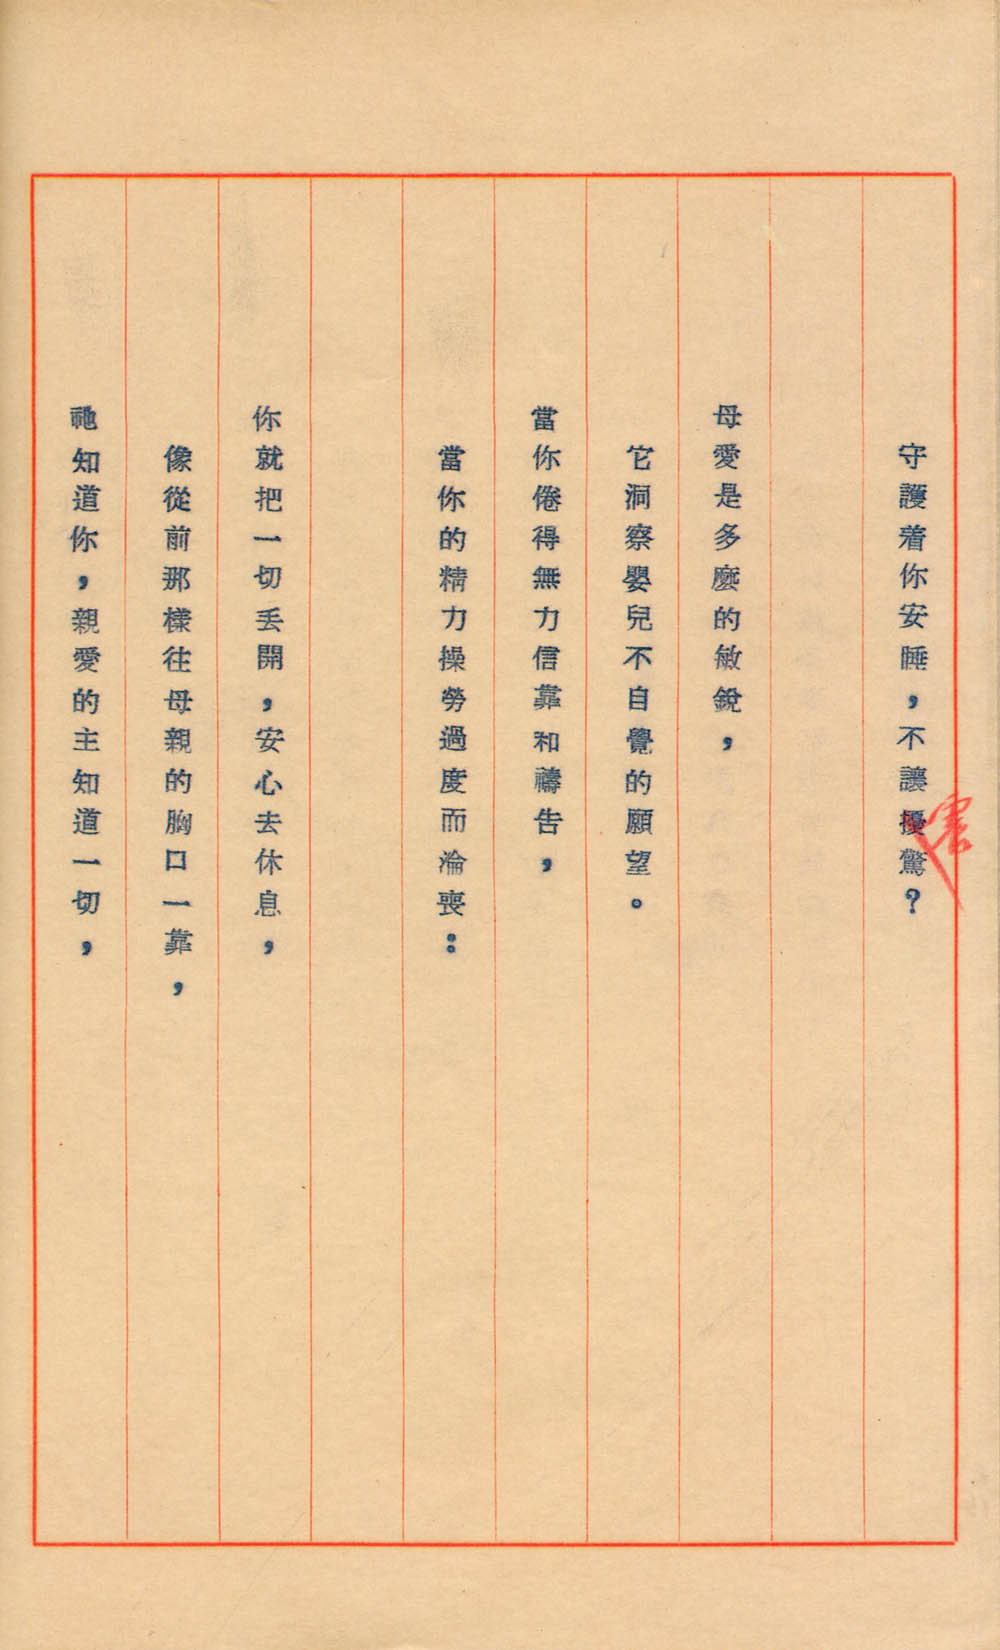 守護着你安睡，不讓擾驚？
害
母愛是多麼的敏銳，
它洞察嬰兒不自覺的願望。
當你倦得無力信靠和禱告，
當你的精力操勞過度而淪喪：
你就把一切丢開，安心去休息，
像從前那樣往母親的胸口一靠，
祂知道你，親愛的主知道一切，